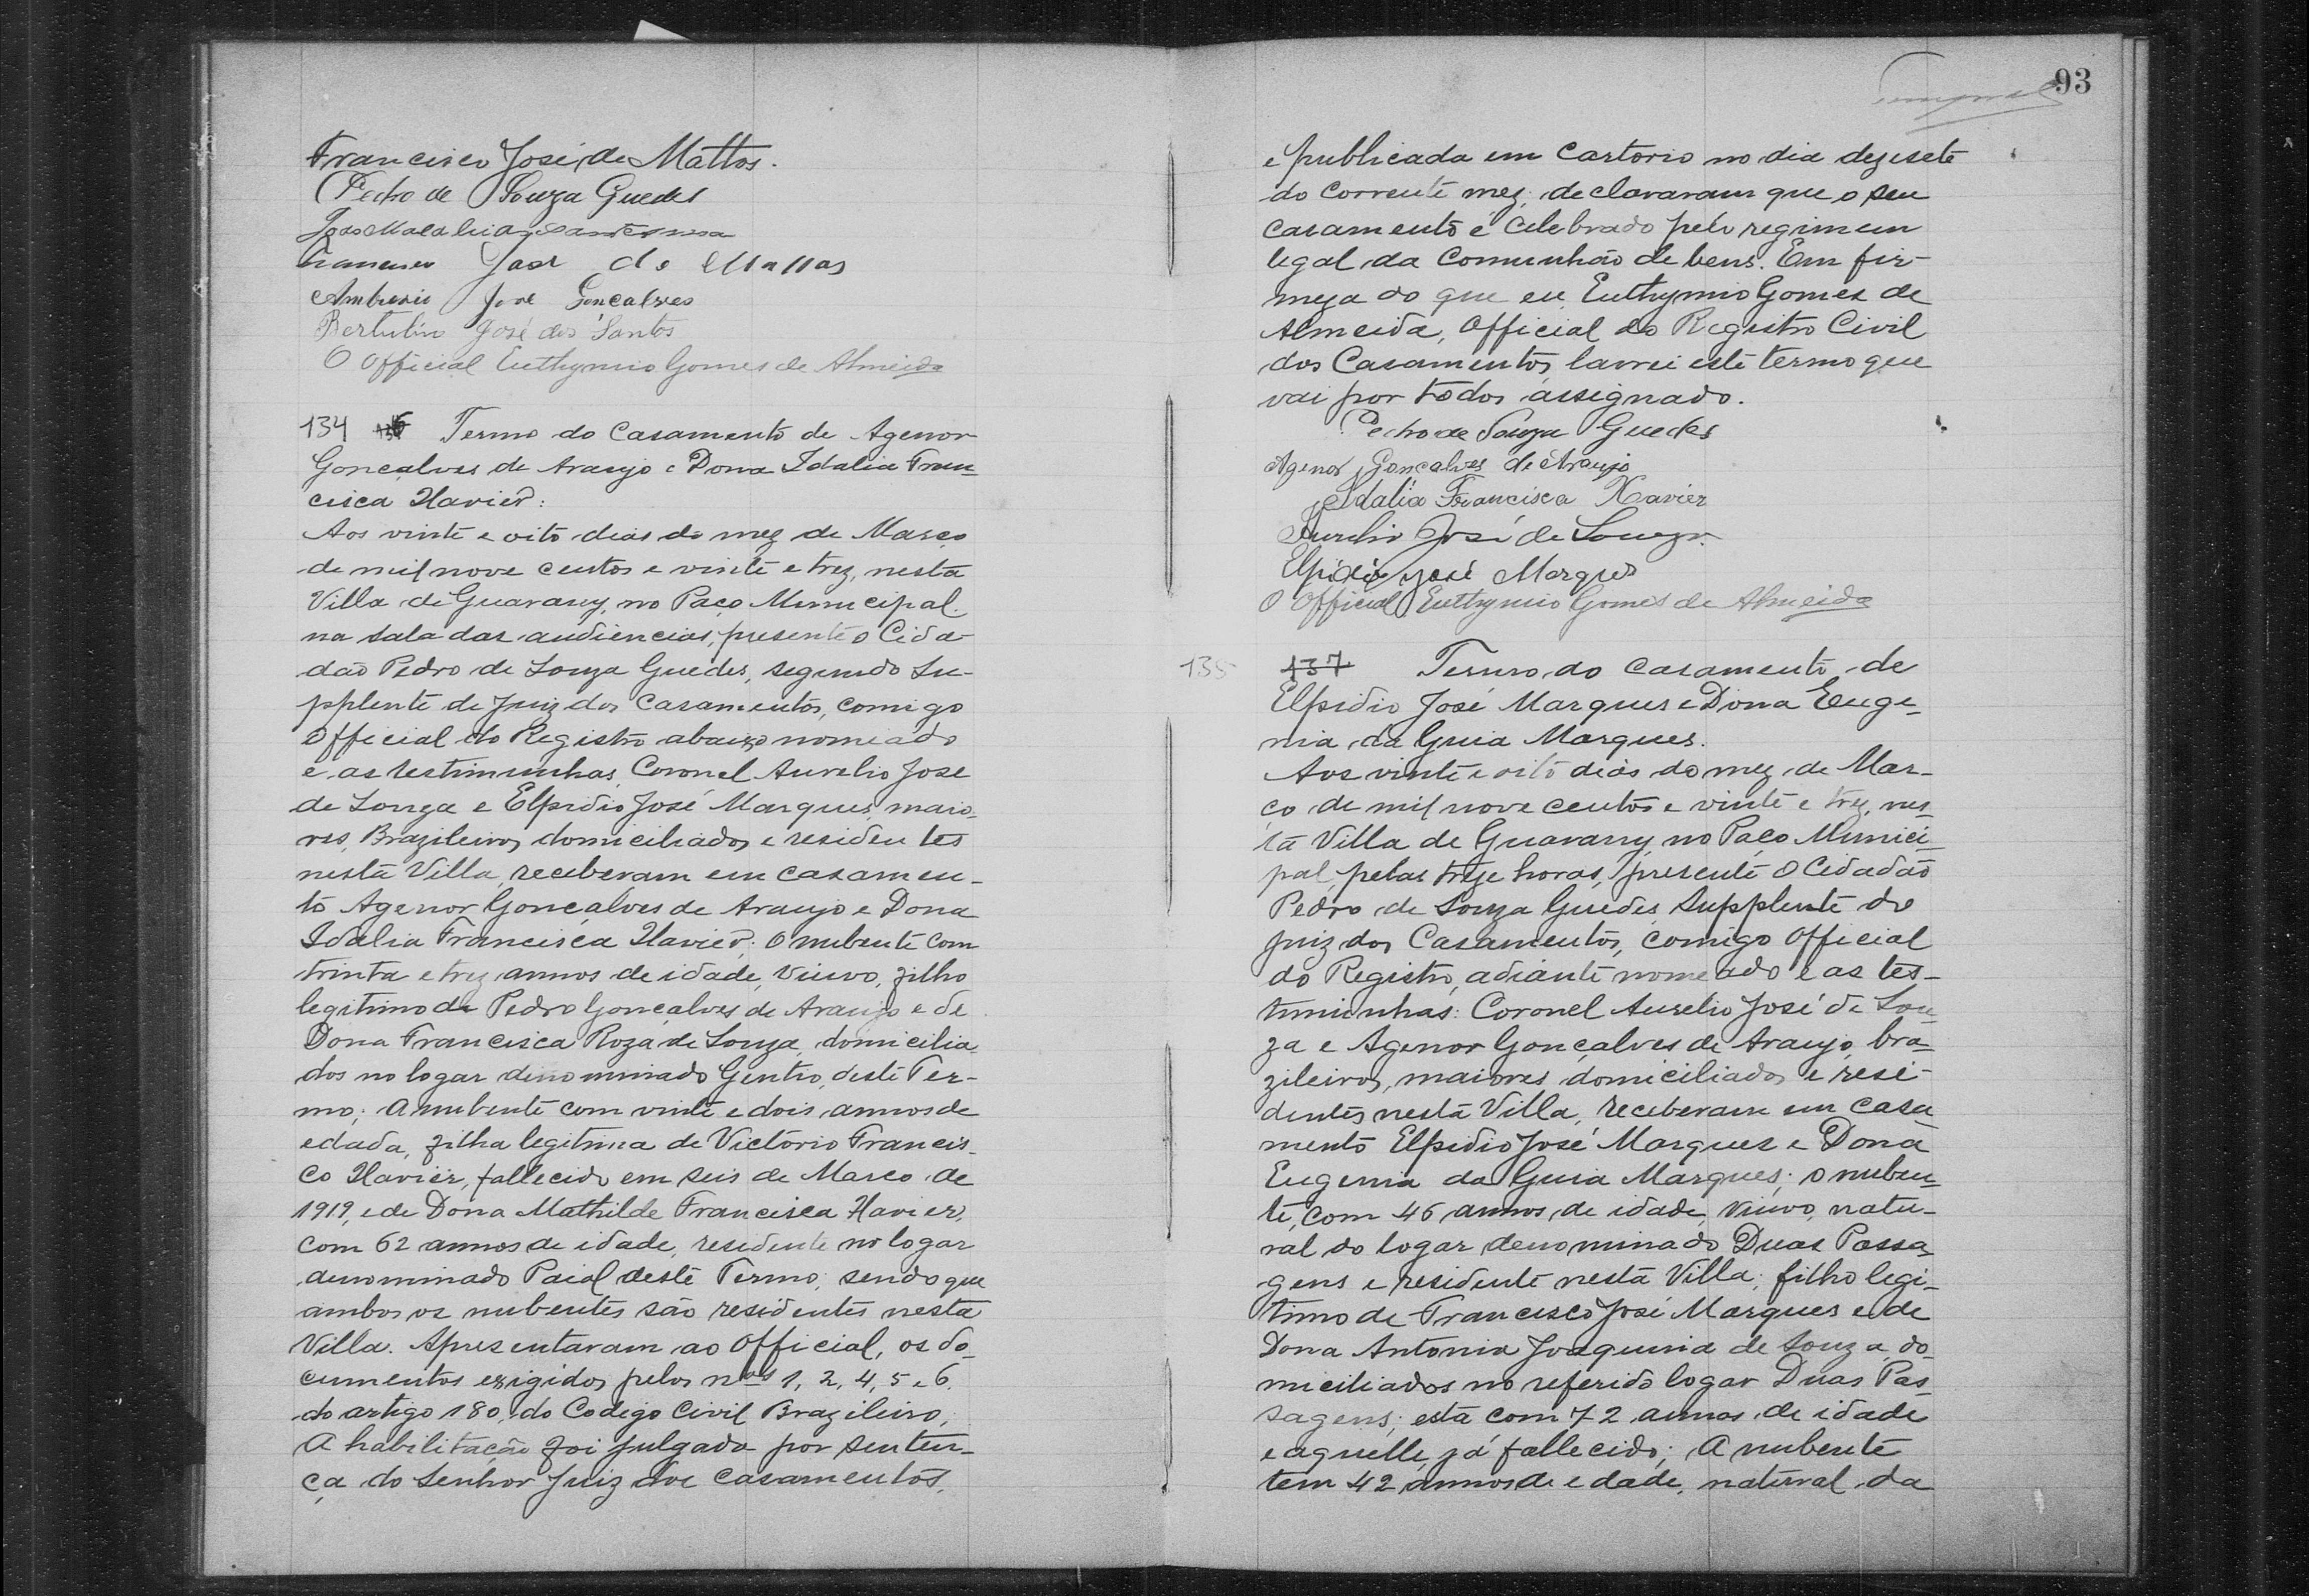 Francisco José de Mattos.
Pedro de Souza Guedes
Francisco José de Mattos
Ambrosio José Gonçalves
Bertulino José dos Santos
O Official Euthymio Gomes de Almeida
134 Termo do Casamento de Agenor
Gonçalves de Araujo e Dona Idalia Fran-
cisca Xavier:
Aos vinte e oito dias do mez de Março
de mil nove centos e vinte e trez, nesta
Villa de Guarany, no Paço Municipal.
na sala das audiencias, presente o Cida-
dão Pedro de Souza Guedes, segundo Su-
pplente de Juiz dos Casamentos, comigo
Official do Registro abaixo nomeado
e as testimunhas Coronel Aurelio Jose
de Souza e Elpidio José Marques, maio-
res, Brazileiros, domiciliados e residentes
nesta Villa, receberam em casamen-
to Agenor Gonçalves de Araujo e Dona
Idalia Francisca Xavier; O nubente com
trinta e trez annos de idade, viuvo, filho
legitimo de Pedro Gonçalves de Araujo e de
Dona Francisca Roza de Souza, domicilia-
dos no logar denominado Gentio, deste Ter-
mo; A nubente com vinte e dois annos de
edada, filha legitima de Victorio Francis-
co Xavier, fallecido em seis de Marco de
1919, e de Dona Mathilde Francisca Xavier,
com 62 annos de idade, residente no logar
denominado Paiol deste Termo; sendo que
ambos os nubentes são residentes nesta
Villa. Apresentaram ao Official, os do-
cumentos exigidos pelos nos 1, 2, 4, 5 e 6.
do artigo 180, do Codigo Civil Brazileiro;
A habilitação foi julgada por senten-
ça do Senhor Juiz dos Casamentos,
93
e publicada em Cartorio no dia dezesete
do corrente mez; declararam que o seu
casamento é celebrado pelo regimen
legal da Comunhão de bens. Em fir-
meza do que eu Euthymio Gomes de
Almeida, Official do Registro Civil
dos Casamentos, lavrei este termo que
vai por todos assignado.
Pedro de Souza Guedes
Agenor Gonçalves de Araujo
Idalia Francisca Xavier
Aurelio José de Souza.
Elpidio José Marques
O Official Euthymio Gomes de Almeida
135 137 Termo do Casamento de
Elpidio José Marques e Dona Euge-
nia da Guia Marques.
Aos vinte e oito dias do mez de Mar-
ço de mil nove centos e vinte e trez, nes-
ta Villa de Guarany, no Paço Munici-
pal, pelas treze horas, presente o Cidadão
Pedro de Souza Guedes, Supplente do
Juiz dos Casamentos, comigo Official
do Registro, adiante nomeado e as tes-
timunhas: Coronel Aurelio José de Sou-
za e Agenor Gonçalves de Araujo, bra-
zileiros, maiores, domiciliados e resi-
dentes nesta Villa, receberam em casa-
mento Elpidio José Marques e Dona
Eugenia da Guia Marques; o nuben-
te, com 46 annos de idade, viuvo, natu-
ral do logar denominado Duas Passa-
gens e residente nesta Villa; filho legi-
timo de Francisco José Marques e de
Dona Antonia Joaquina de Souza, do-
miciliados no referido logar Duas Pas-
sagens; esta com 72 annos de idade
e aquelle já fallecido; A nubente
tem 42 annos de edade, natural da